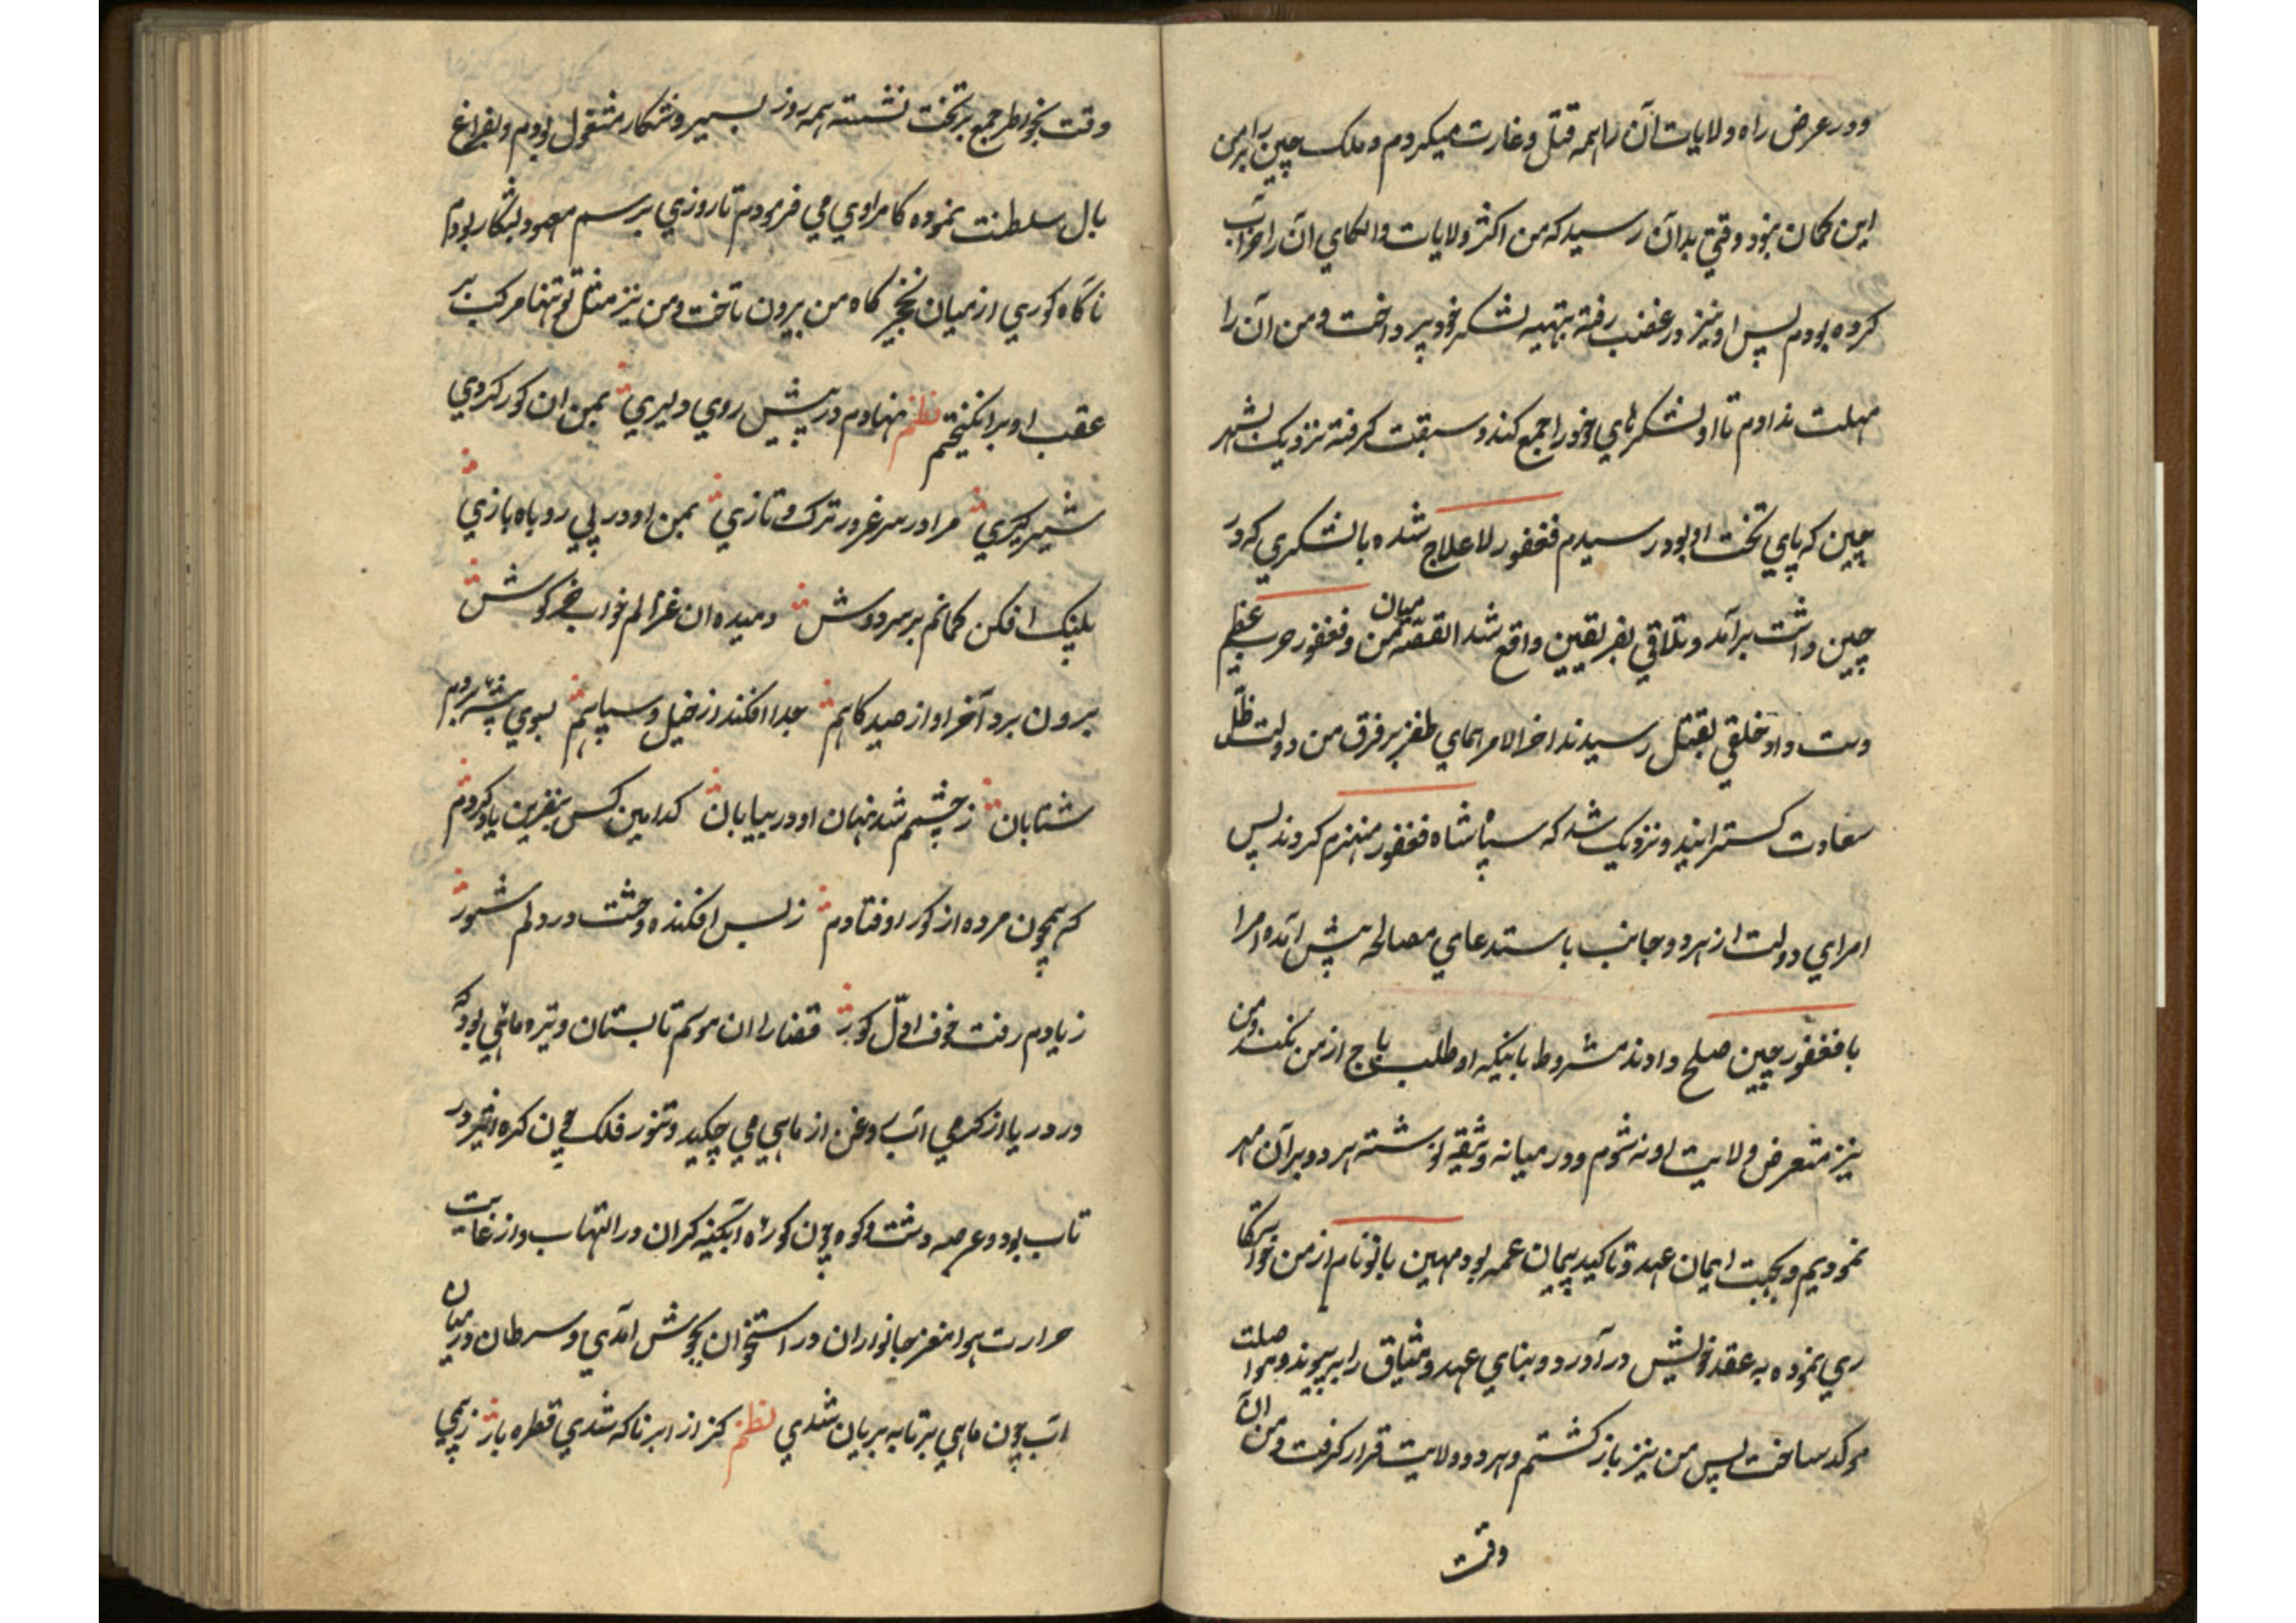 ودر عرض راه ولایات آن را همه قتل وغارت میکردم وملک چین را بر من
این کمان نبود وقتی بدان رسید که من اکثر ولایات والکای آن را خراب
کرده بودم پس او نیز در غضب رفته بتهیه لشکر خود پرداخت ومن آن را
مهلت ندادم تا او لشکرهای خود را جمع کند وسبقت کرفته نزدیک بشهر
چین که پای تخت او بود رسیدم فغفور لاعلاج شده با لشکری که در
چین داشت برآمد وتلاقی بفریقین واقع شد القصّه میان من وفغفور حرب عظیم
دست داد وخلقی بقتل رسیدند اخر الامر همای ظفر بر فرق من دولت ظلّ
سعادت کسترانید ونزدیک شد که سپاه شاه فغفور منهزم کردند پس
امرای دولت از هر دو جانب باستدعای مصالحه پیش آمده مرا
با فغفور چین صلح دادند مشروط باینکه او طلب باج از من نکند ومن
نیز متعرض ولایت او نه شوم ودر میانه وثیقه نوشته هر دو بر آن مهر
نمودیم وبجهت ایمان عهد وتاکید پیمان عمه بود مهین بانو نام از من خواستکا
ری نموده به عقد خویش در آورد وبنای عهد ومیثاق را به پیوند ومواصلت
موکد ساخت پس من نیز باز کشتم وهر دو ولایت قرار کرفت ومن ان
وقت
وقت بخواطر جمع بر تخت نشسته همه روز بسیر وشکار مشغول بودم وبفراغ
بال سلطنت نموده کامراوی می فرمودم تا روزی برسم معهود بشکار بودم
ناکاه کوری از میان نخچیر کاه من بیرون تاخت ومن نیز مثل تو تنها مرکب بر
عقب او بر انکیختم نظم نهادم در پیش روی دلیری بمن ان کور کردی
شیرکیری مرا در سر غرور ترک وتازی بمن او در پی روباه بازی
پلنک افکن کمانم بر سر دوش دمیده ان غزالم خواب خرکوش
برون برد آخر او از صید کاهم جدا افکند از خیل وسپاهم بسوی پشه بردم
شتابان ز چشمم شد نهان او در بیابان کدامین کس بنفرین یاد کردم
که همچون مرده از کور اوفتادم ز بس افکنده وحشت در دلم شور
ز یادم رفت خوف اوّل کور قضا را ان موسم تابستان وتیر ماهی بود که
در دریا از کرمی اب روغن از ماهی می چکید وتنور فلک چون کره اثیر در
تاب بود وعرصه دشت وکوه چون کورهٔ آبکینه کران در التهاب واز غایت
حرارت هوا مغز جانوران در استخوان بجوش آمدی وسرطان در میان
اب چون ماهی بر تابه بریان شدی نظم کز از ابر ناکه شدی قطره بار زپی